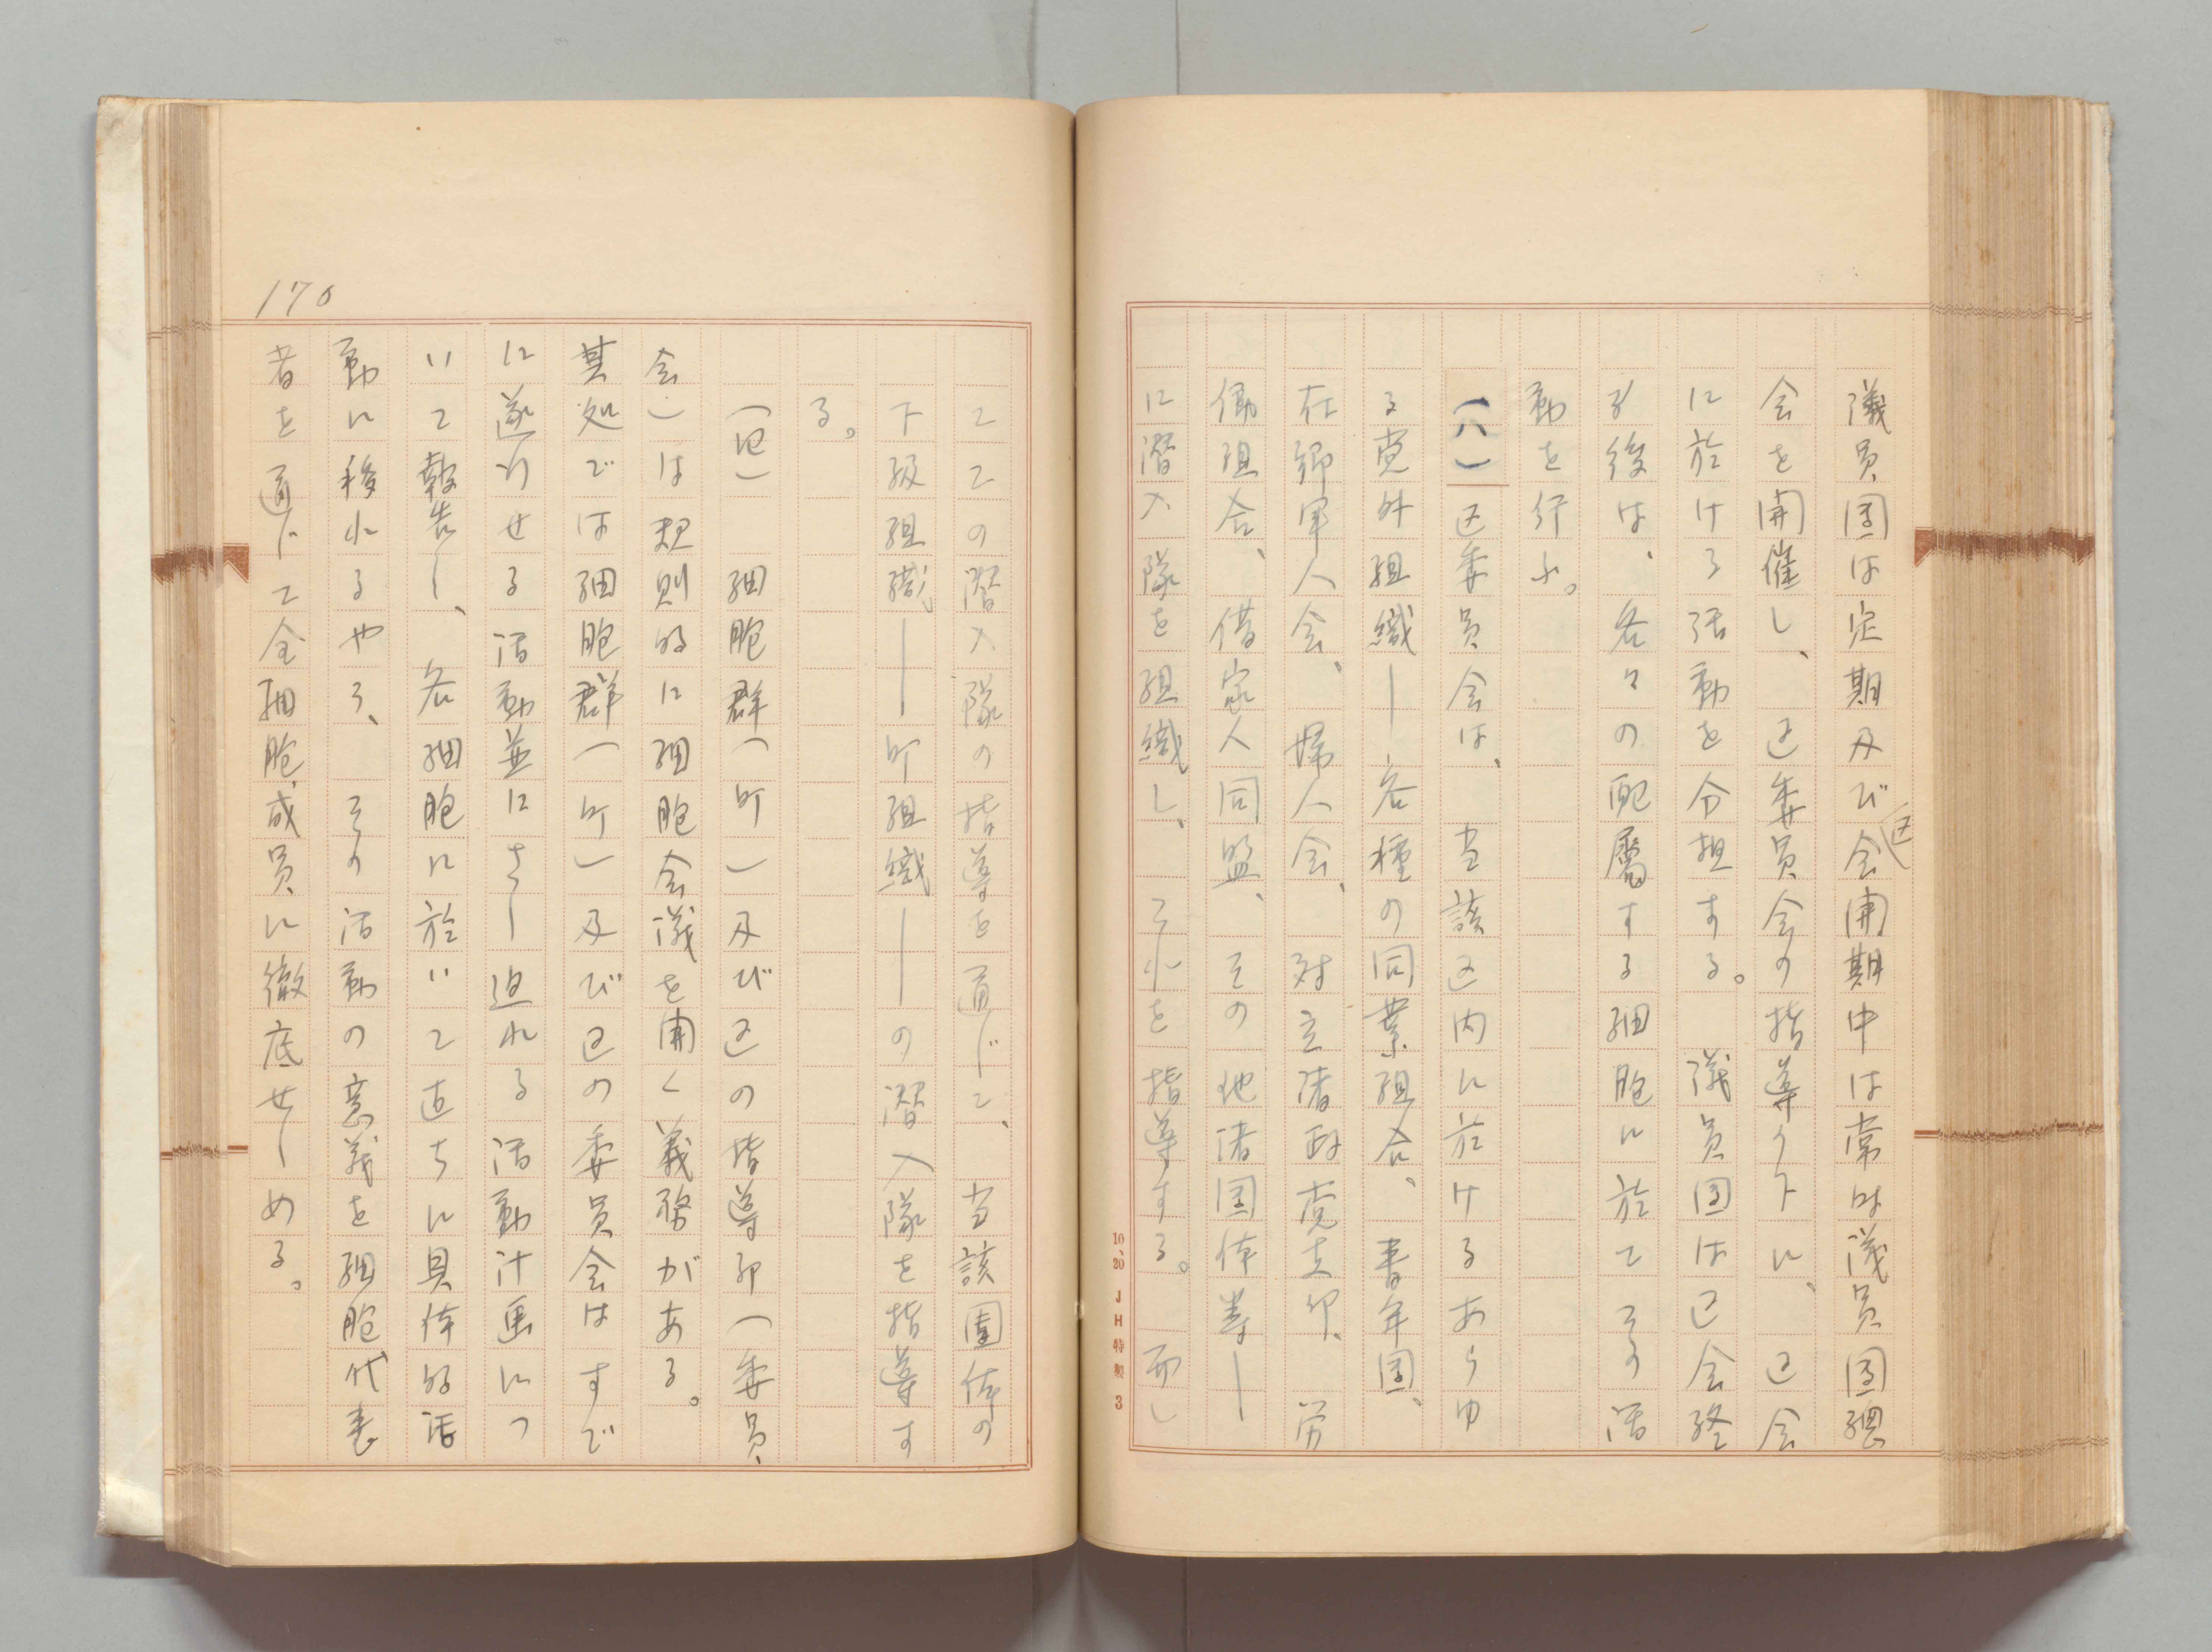 議員団は定期及び区会開期中は常時議員団總
会を開催し、区委員会の指導の下に、区会
に於ける活動を分担する。議員団は区会終
了後は、各々の配属する細胞に於てその活
動を行ふ。
(八)区委員会は、当該区内に於けるあらゆ
る党外組織―各種の同業組合、青年団、
在郷軍人会、婦人会、対立諸政党支部、労
働組合、借家人同盟、その他諸団体等―
に潜入隊を組織し、それを指導する。而し
10.20 JH特製 3
てこの潜入隊の指導を通じて、当該団体の
下級組織――町組織――の潜入隊を指導す
る。
(四) 細胞群(町)及び区の指導部(委員
会)は規則的に細胞会議を開く義務がある。
其処では細胞群(町)及び区の委員会はすで
に遂行せる活動並にさし迫れる活動計画につ
いて報告し、各細胞に於いて直ちに具体的活
動に移れるやう、その活動の意義を細胞代表
者を通じて全細胞成員に徹底せしめる。
170